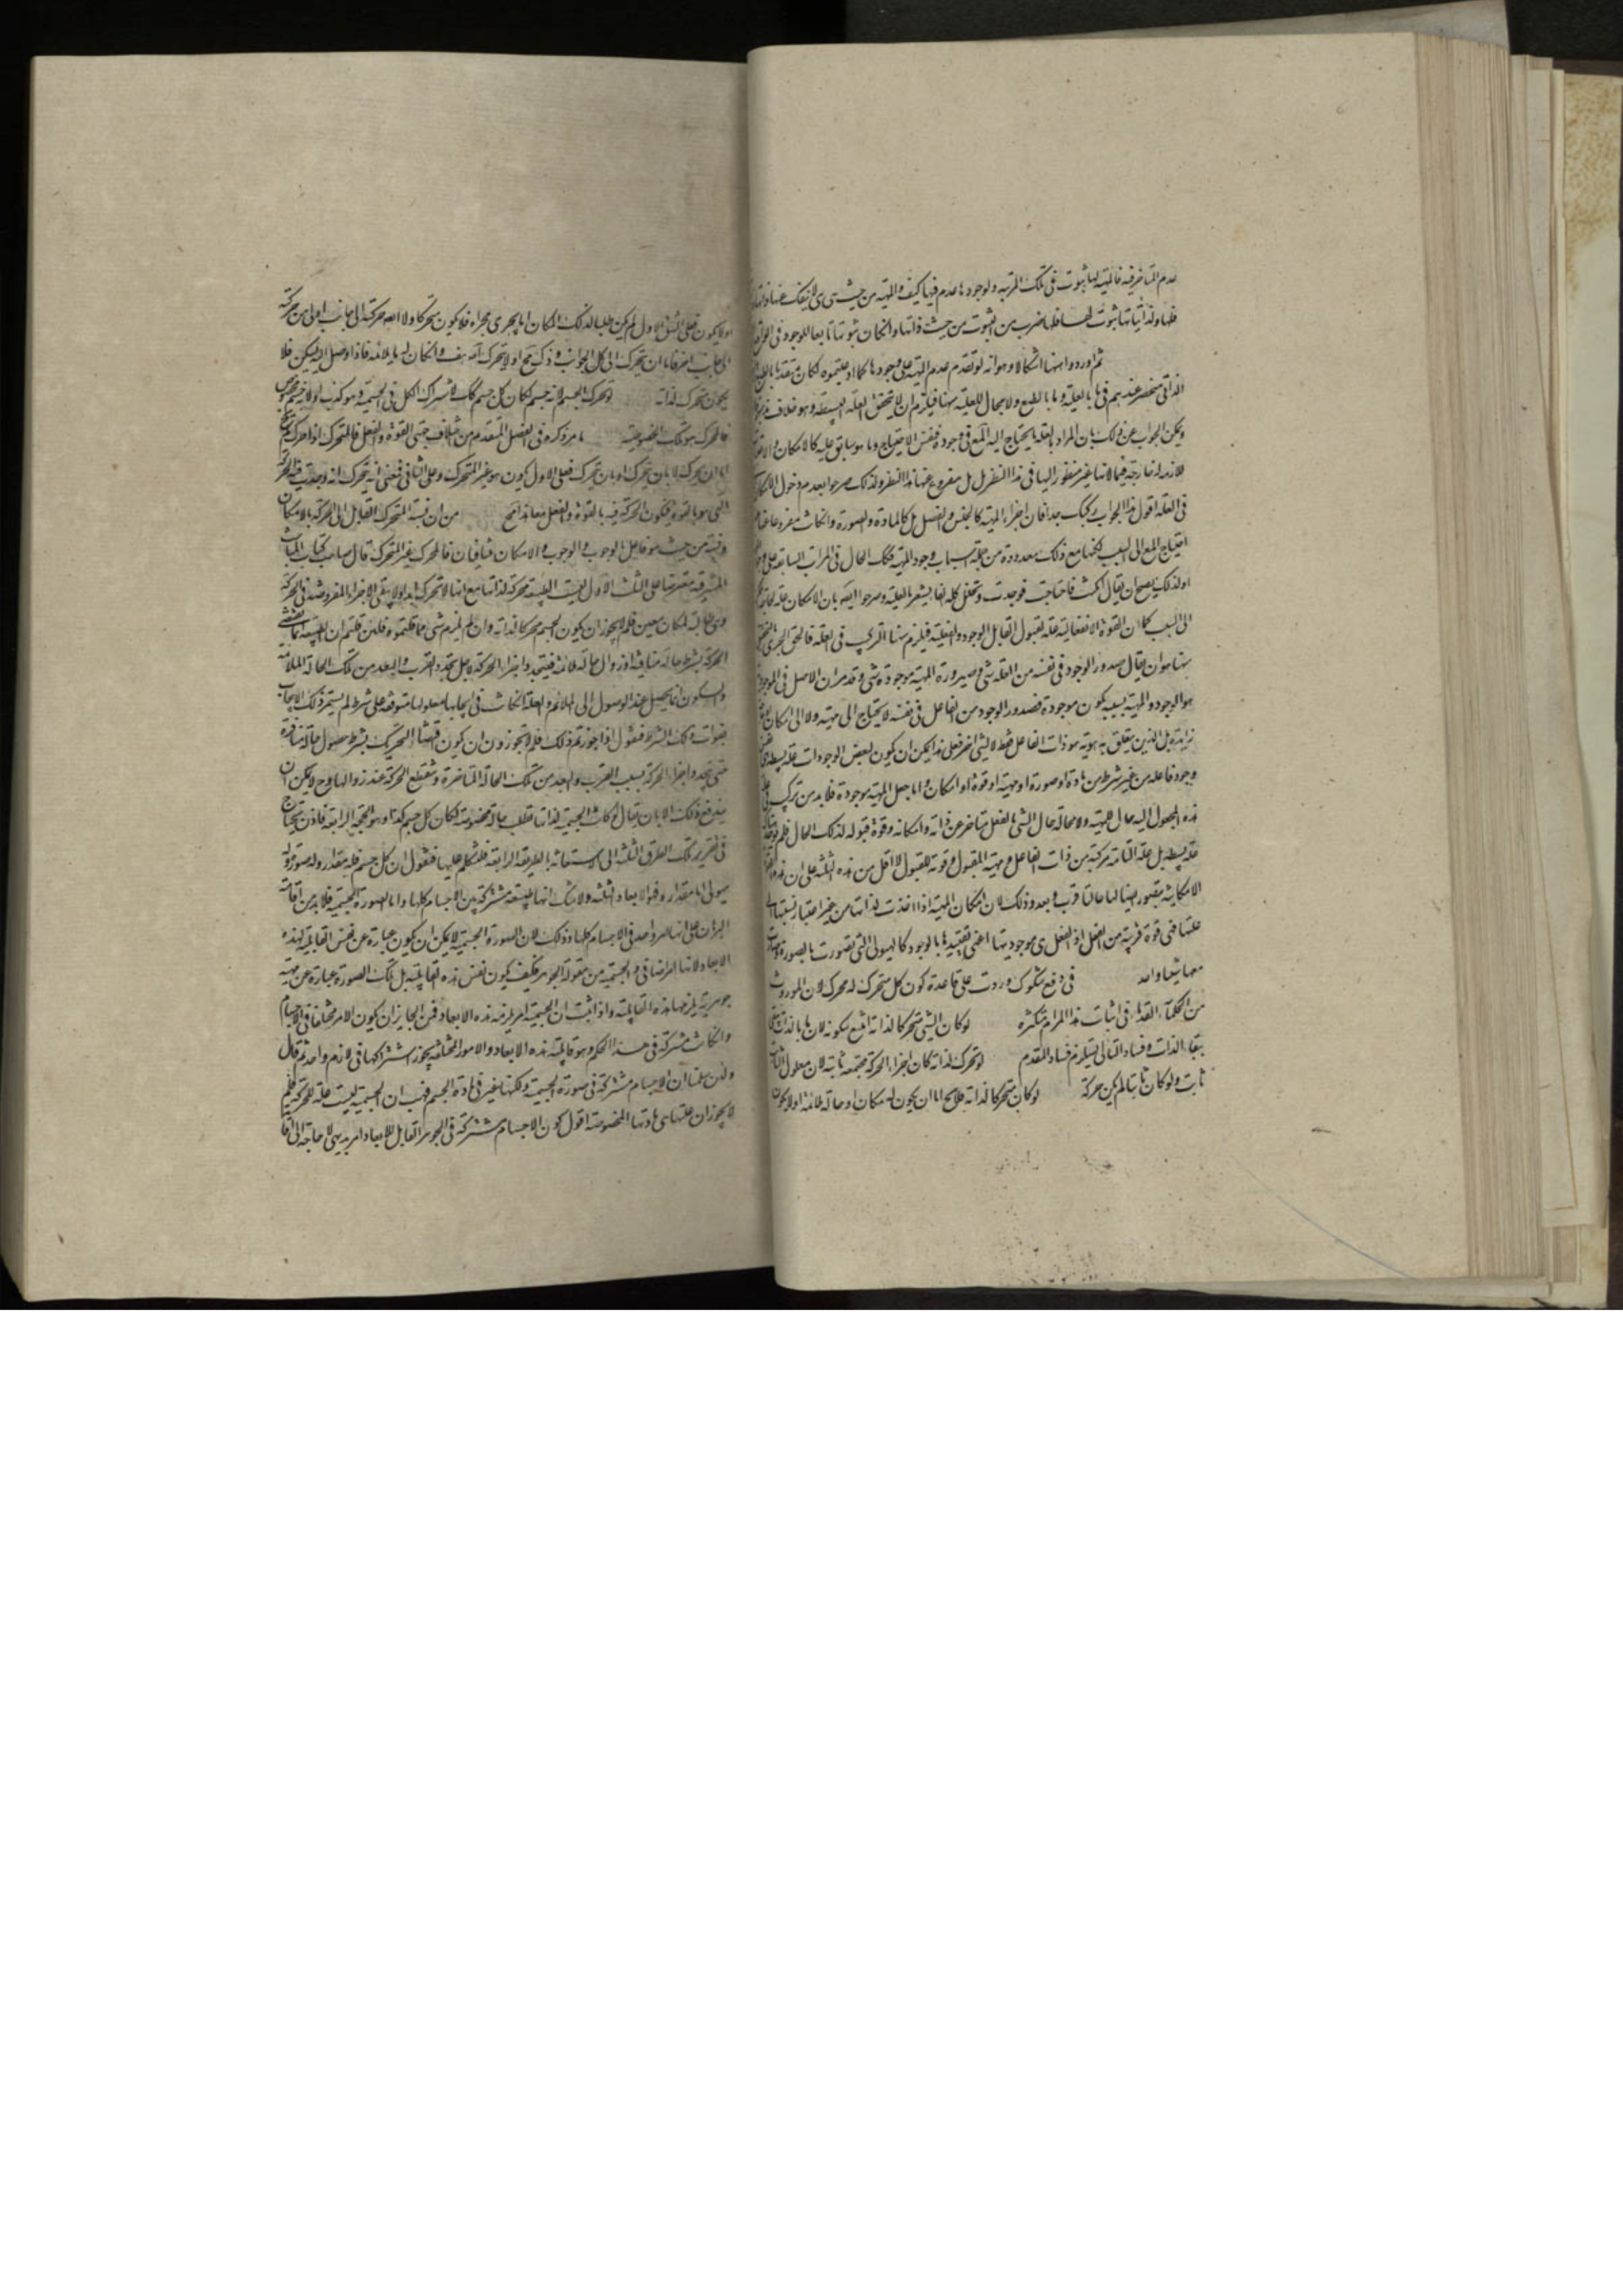 عدم المتاخر فيه فالمهية لها ثبوت فى تلك المرتبة ولوجودها عدم فيها كيف والمهية من حيث هى هى لا ينفك عنها ذاتها
فلها ولذاتياتها ثبوت لها فلها ضرب من الثبوت من حيث ذاتها وان كان ثبوتا تابعا للوجود فى الواقع
ثم اوردوا ههنا اشكالا وهو انه لو تقدم عدم المهية على وجودها كما ادعيتموه لكان متقدما بالطبع
الذاتى منحصر عندهم فى ما بالعلية وما بالطبع ولا مجال للعلية ههنا فيلزم ان لا يتحقق العلة البسيطة وهو خلاف مذهبهم
ويمكن الجواب عن ذلك بان المراد بالعلة ما يحتاج اليه المع فى وجوده فنفس الاحتياج وما هو سابق عليه كالامكان والاعتبارات
اللازمة له خارجة فيما لانها غير منظور اليها فى هذا النظر بل مفروغ عنها هذا النظر ولذلك صرحوا بعدم دخول الامكان
فى العلة اقول هذا الجواب ركيك جدا فان اجزاء المهية كالجنس والفصل بل كالمادة والصورة وان كانت مفروغا عنها
احتياج المع الى السبب لكنها مع ذلك معدودة من جملة اسباب وجود المهية فكك الحال فى المراتب السابقة على وجود
اولذلك يصح ان يقال امكنت فاحتاجت فوجدت وتخلل كلمة الفا يشعر بالعلية وصرحوا ايضا بان الامكان علة لحاجة
الى السبب كما ان القوة الانفعالية علة لقبول القابل الوجود والفعلية فيلزم ههنا التركيب فى العلة فالحق الحرى
ههنا هو ان يقال صدور الوجود فى نفسه من العلة شى وصيرورة المهية موجودة شى وقد مر ان الاصل فى الموجود
هو الوجود والمهية بسببه يكون موجودة فصدور الوجود من الفاعل فى نفسه لا يحتاج الى مهية ولا الى امكان
زايد بل الذى يتعلق به هويته هو ذات الفاعل فقط لا لشى اخر فعلى هذا يمكن ان يكون لبعض الوجودات علة بسيطة
وجود فاعله من غير شرط من مادة او صورة او مهية او قوة او امكان واما جعل المهية موجودة فلا بد من تركب
هذه المجعول اليه حال المهية ولا محالة حال الشى بالفعل متاخر عن ذاته وامكانه وقوة قبوله لذلك الحال فلم يوجد
علة بسيطة بل علة التامة مركبة من ذات الفاعل ومهية المقبول وقوته للقبول لا اقل من هذه الثلثة على ان هذه
الامكانية يتصور ايضا لها حالتا قرب وبعد وذلك لان امكان المهية اذا اخذت لذاتها من غير اعتبار نسبتها الى
علتها فهى قوة قريبة من الفعل اذ الفعل هى موجوديتها اعنى تقييدها بالوجود كالهيولى التى تصورت بالصورة
معها شيئا واحدا فى دفع شكوك وردت على قاعدة كون كل متحرك له محرك لان الموروث
من الحكماء القدماء فى اثبات هذا المرام متكثرة لو كان الشى متحركا لذاته امتنع سكونه لان ما بالذات يبقى
ببقاء الذات وفساد التالى يستلزم فساد المقدم لو تحرك لذاته كان اجزاء الحركة مجتمعة ثابتة لان معلول الثابت
ثابت ولو كان ثابتا لم يكن حركة لو كان متحركا لذاته فلا يخ اما ان يكون له مكان او حالة ملائمة اولا يكون
اولا يكون فعلى الشق الاول لم يكن طلبا لذلك المكان اما يجرى مجراه فلا يكون متحركا ولا ايضا حركته الى جانب اولى من حركته
الى جانب اخر فاما ان يتحرك الى كل الجوانب وذلك مح او لا يتحرك اصلا هف وان كان له ما يلائمه فاذا وصل اليه سكن فلا
يكون متحركا لذاته لو تحرك الجسم لانه جسم لكان كل جسم كك لاشتراك الكل فى الجسمية وهو كذب او لانه جسم مخصوص
فالمحرك هو تلك الخصوصية ما مر ذكره فى الفصل المتقدم من اختلاف جهتى القوة والفعل فالمتحرك اذا حرك
اما ان يحرك لا بان يتحرك او بان يتحرك فعلى الاول يكون هو غير المتحرك وعلى الثانى فمعنى انه يتحرك انه وجدت فيه الحركة
التى هو بالقوة فيكون الحركة فيه بالقوة والفعل معا هذا مح من ان نسبة المتحرك القابل الى الحركة بالامكان
ونسبته من حيث هو فاعل بالوجوب والوجوب والامكان متنافيان فالمحرك غير المتحرك قال صاحب كتاب المباحث
المشرقية معترضا على الثلث الاول اليست الطبيعة متحركة لذاتها مع انها لا تتحرك ابدا ولا يبقى الاجزاء المفروضة فى الحركة
وهى طالبة لمكان معين فلم لا يجوز ان يكون الجسم محركا لذاته وان لم يلزم شى مما قلتموه فلئن قلتم ان الطبيعة انما تقتضى
الحركة بشرط حالة منافية او زوال حالة ملائمة فيتجدد اجزاء الحركة لاجل تجدد القرب والبعد من تلك الحالة الملائمة
والسكون انما يحصل عند الوصول الى الملائم والعلة اذا كانت فى ايجابها معلولها متوقفة على شرط لم يستمر ذلك الايجاب
بفوات ذلك الشرط فنقول اذا جوزتم ذلك فلم لا تجوزون ان يكون اقتضاء التحريك بشرط حصول حالة منافرة
حتى يتجدد اجزاء الحركة بسبب القرب والبعد من تلك الحالة المتنافرة وتنقطع الحركة عند زوالها وح لا يمكن ان
يندفع ذلك الا بان يقال لو كانت الجسمية لذاتها تطلب حالة مخصوصة لكان كل جسم كذا وهو الحجة الرابعة فاذن يحتاج
فى تقرير تلك الطرق الثلثة الى الاستعانة بالطريقة الرابعة فلنتكلم عليها فنقول ان كل جسم فله مقدار وله صورة وله
هيولى اما مقداره فهو الابعاد الثلثة ولا شك انها طبيعة مشتركة بين الاجسام كلها واما الصورة الجسمية فلا بد من اقامة
البرهان على انها امر واحد فى الاجسام كلها وذلك لان الصورة الجسمية لا يمكن ان يكون عبارة عن نفس القابلية لهذه
الابعاد لانها امر اضافى والجسمية من مقولة الجوهر فكيف يكون نفس هذه القابلية بل تلك الصورة عبارة عن مهية
جوهرية يلزمها هذه القابلية واذا ثبت ان الجسمية امر يلزمه هذه الابعاد فمن الجايز ان يكون الامر مختلفا فى الاجسام
وان كانت مشتركة فى هذا الحكم وهو قابلية هذه الابعاد والامور المختلفة يجوز اشتراكها فى لازم واحد ثم قال
ولئن سلمنا ان الاجسام مشتركة فى صورة الجسمية ولكنها غير فى مادة الجسم فهب ان الجسمية ليست علة للحركة فلم
لا يجوز ان علتها هى مادتها المخصوصة اقول كون الاجسام مشتركة فى الجوهر القابل للابعاد امر بديهى لا حاجة الى اقا